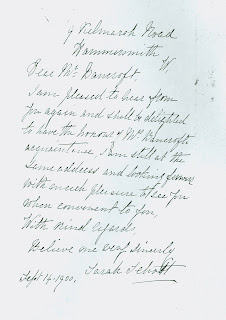 9 Kilmarsh Road
Hammersmith
W.
Dear Mr Bancroft,
I am pleased to hear from
you again and shall be delighted
to have the honour of Mr Bancrofts
acquaintance. I am still at the
same address and looking forward
with much pleasure to see you
when convenient to you,
With kind regards,
Believe me very sincerely
Sarah
Sept 14. 1900.